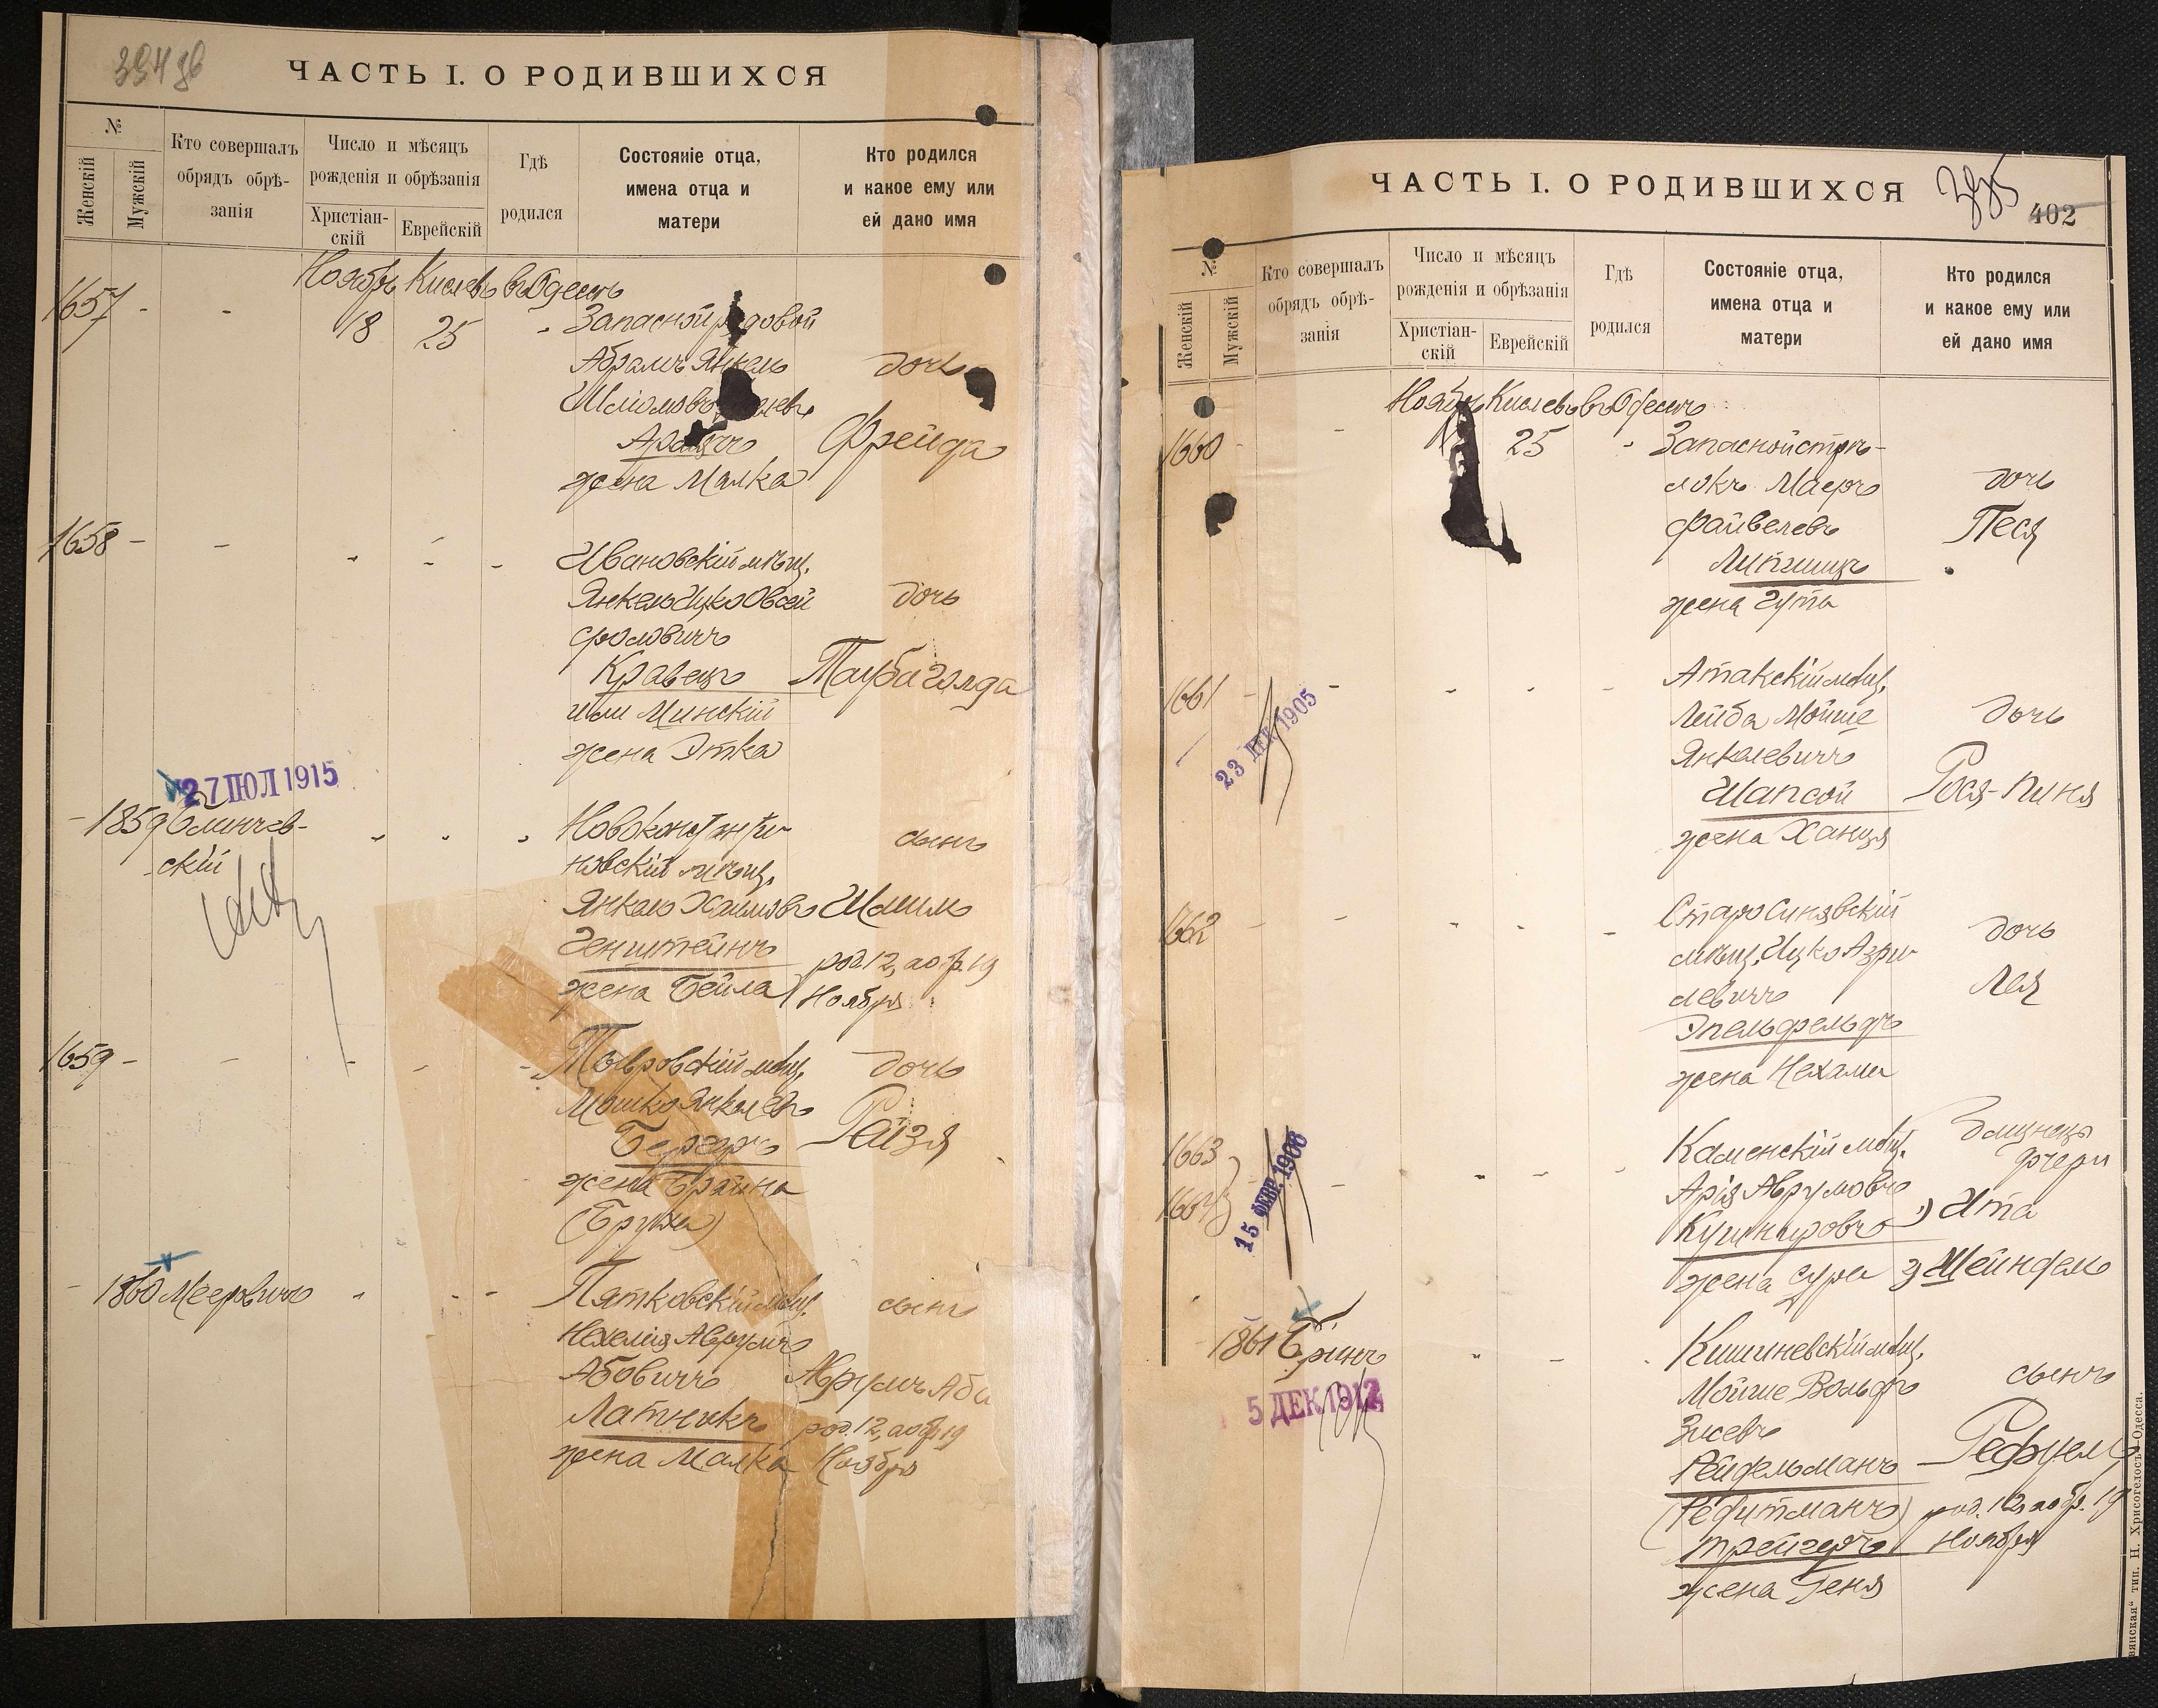 394 об
ЧАСТЬ I. О РОДИВШИХСЯ
№
Женскій
Мужскій
Кто совершалъ
обрядъ обрѣ-
занія
Число и мѣсяцъ
рожденія и обрѣзанія
Христіан-
скій
Еврейскій
Гдѣ
родился
Состояніе отца,
имена отца и
матери
Кто родился
и какое ему или
ей дано имя
Ноябрь Кислевъ въ Одессѣ
1657 - - 18 25 - Запасной рядовой
Абрамъ Янкель дочь
Шліомовъ
Фрейда
жена Малка
1658 - - - - - Ивановскій мѣщ.
Янкель Ицко Овсей дочь
фроловичъ
Кравецъ Тауба Голда
или Минскій
жена Этка
27 ІЮЛ 1915
- 1859 Олинчев- - - - Новоконстанти-
скій новскій мѣщ. сынъ
Янкель Хаимовъ Шлим
Генштейнъ род. 12, а обр. 19
жена Бейла Ноября
1659 - - - - - Тывровскій мѣщ. дочь
Мошко Янкелевъ
Бергеръ Рейзя
жена Брайна
(Бруха)
- 1860 Мееровичъ - - - Пятковскій мѣщ. сынъ
Нехемія Аврумъ
Абовичъ Аврумъ Аба
Латникъ род. 12, а обр 19
жена Малка Ноября
ЧАСТЬ I. О РОДИВШИХСЯ
395
402
№
Женскій
Мужскій
Кто совершалъ
обрядъ обрѣ-
занія
Число и мѣсяцъ
рожденія и обрѣзанія
Христіан-
скій
Еврейскій
Гдѣ
родился
Состояніе отца,
имена отца и
матери
Кто родился
и какое ему или
ей дано имя
Ноябрь Кислевъ въ Одессѣ
1660 - - 25 - Запасной стрѣ-
локъ Маеръ дочь
Файвелевъ Песя
Липшицъ
жена Гута
1661 - - - - - Атакскій мѣщ.
23 ДЕК 1905
Лейба Мойше дочь
Янкелевичъ
Шапсой Рося-Пиня
жена Ханця
1662 - - - - - Старо Синявскій
мѣщ. Ицко Азри- дочь
левичъ Лея
Эпельфельдъ
жена Нехама
1663
1664
15 ФЕВР. 1906
- - - - Каменскій мѣщ. близнецы
Арія Аврумовъ дочери
Кушнировъ 1) Ита
жена Сура 2) Шейндель
1861 Гринъ - - - Кишиневскій мѣщ.
5 ДЕК 1912
Мойше Вольфъ сынъ
Зисевъ
Рейдельманъ Рефуель
(Редитманъ) род. 12, а обр. 19
Трейгеръ Ноября
жена Геня
тип. Н. Хрисогелосъ—Одесса.